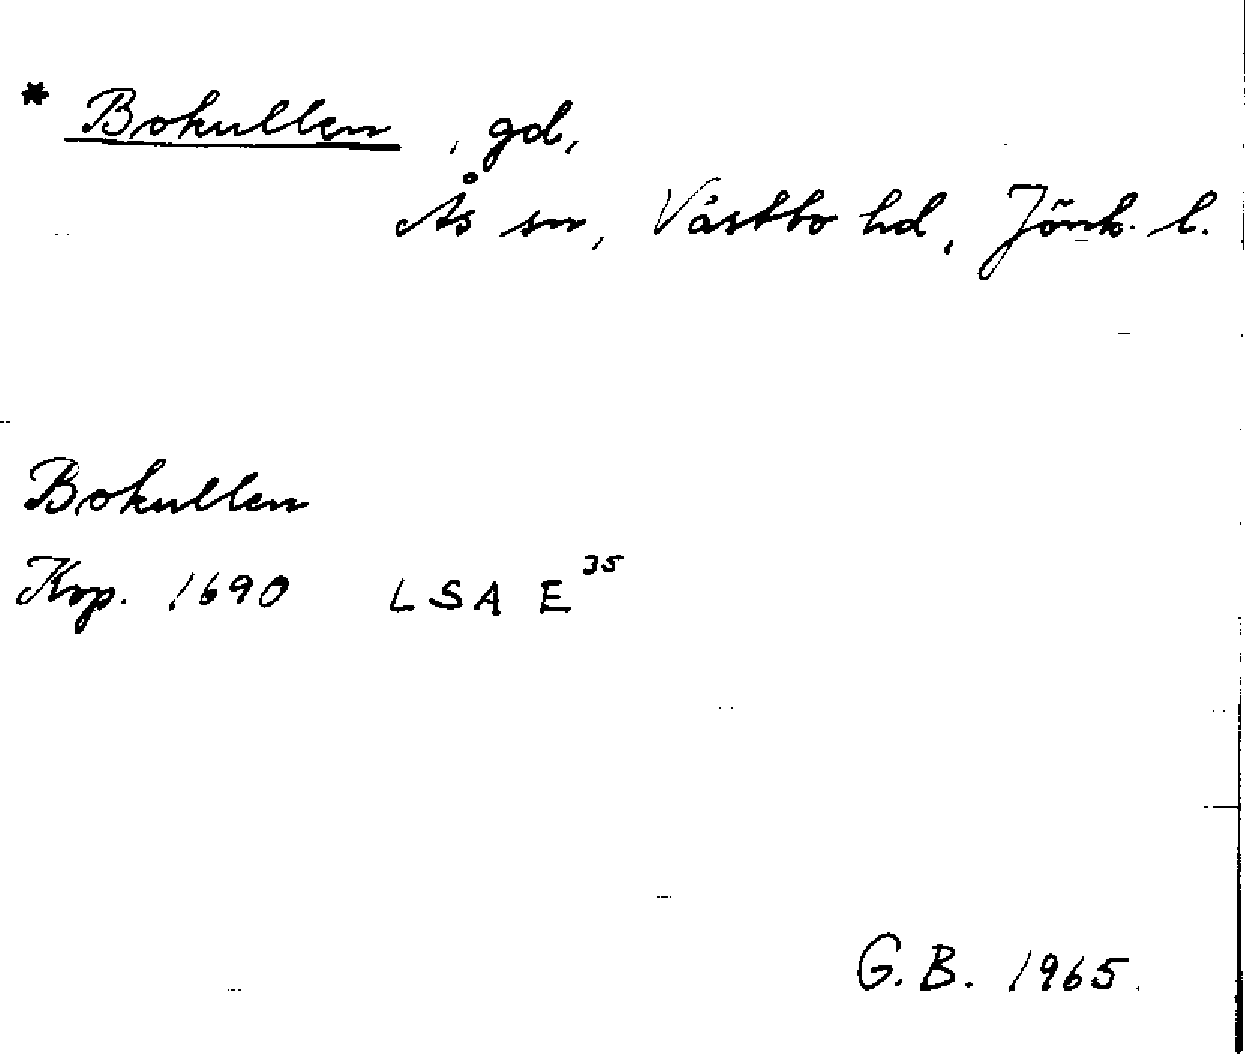 * Bokullen, gd,
Ås sn, Västbo hd, Jönk. l.
Bokullen
Krp. 1690 LSA E³⁵
G.B. 1965.